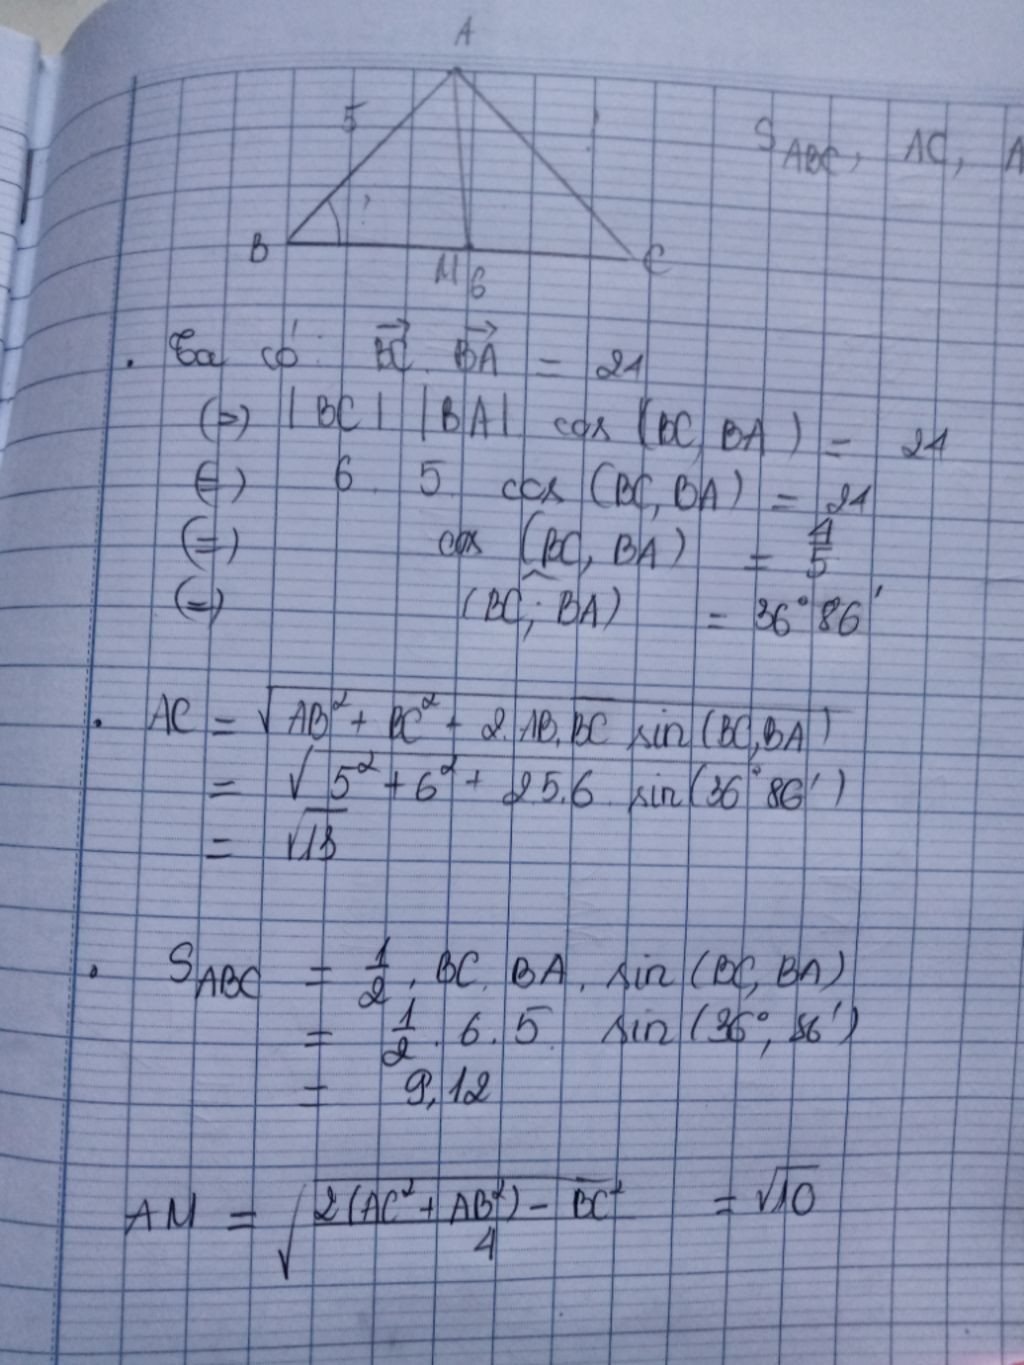 A
5
S_ABC, AC, A
?
B
M
6
C
. Ta có: BC→. BA→ = 24
(=) |BC| |BA| cos (BC, BA) = 24
(=) 6. 5. cos (BC, BA) = 24
(=) cos (BC, BA) = 4/5
(=) (BC; BA) = 36°86'
. AC = √(AB² + BC² + 2.AB.BC sin (BC, BA))
= √(5² + 6² + 2 5.6. sin(36°86'))
= √13
. S_ABC = 1/2 . BC. BA. sin (BC, BA)
= 1/2 . 6. 5. sin (36°, 86')
= 9,12
AM = √(2(AC² + AB²) - BC² / 4) = √10